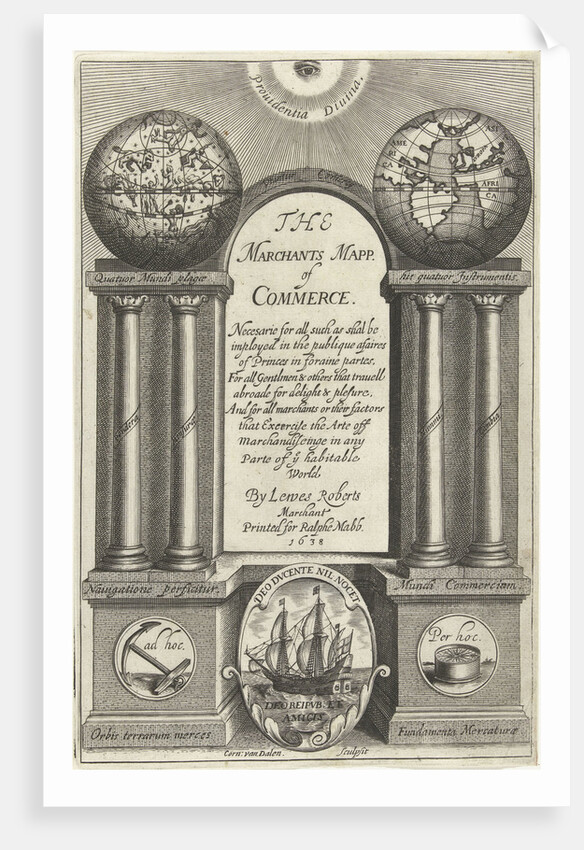 Providentia Divina.
AME
RI
CA
ASI
AFRI
CA
THE
MARCHANTS MAPP.
of
COMMERCE.
Quatuor Mundi plagæ
his quatuor Instrumentis.
Necesarie for all such as shal be
imployed in the publique afaires
of Princes in foraine partes.
For all Gentlmen & others that travell
abroade for delight & plesure.
And for all marchants or their factors
that Exercise the Arte off
marchandiseinge in any
Parte of ẙ habitable
World
By Lewes Roberts
Marchant
Printed for Ralphe Mabb.
1638
Navigatione perficitur.
Mundi Commercium.
DEO DVCENTE NIL NOCET
ad hoc.
Per hoc.
DEO REIPVB. ET
AMICIS
Orbis terrarum merces
Fundamenta Mercaturæ
Corn: van Dalen. Sculpsit